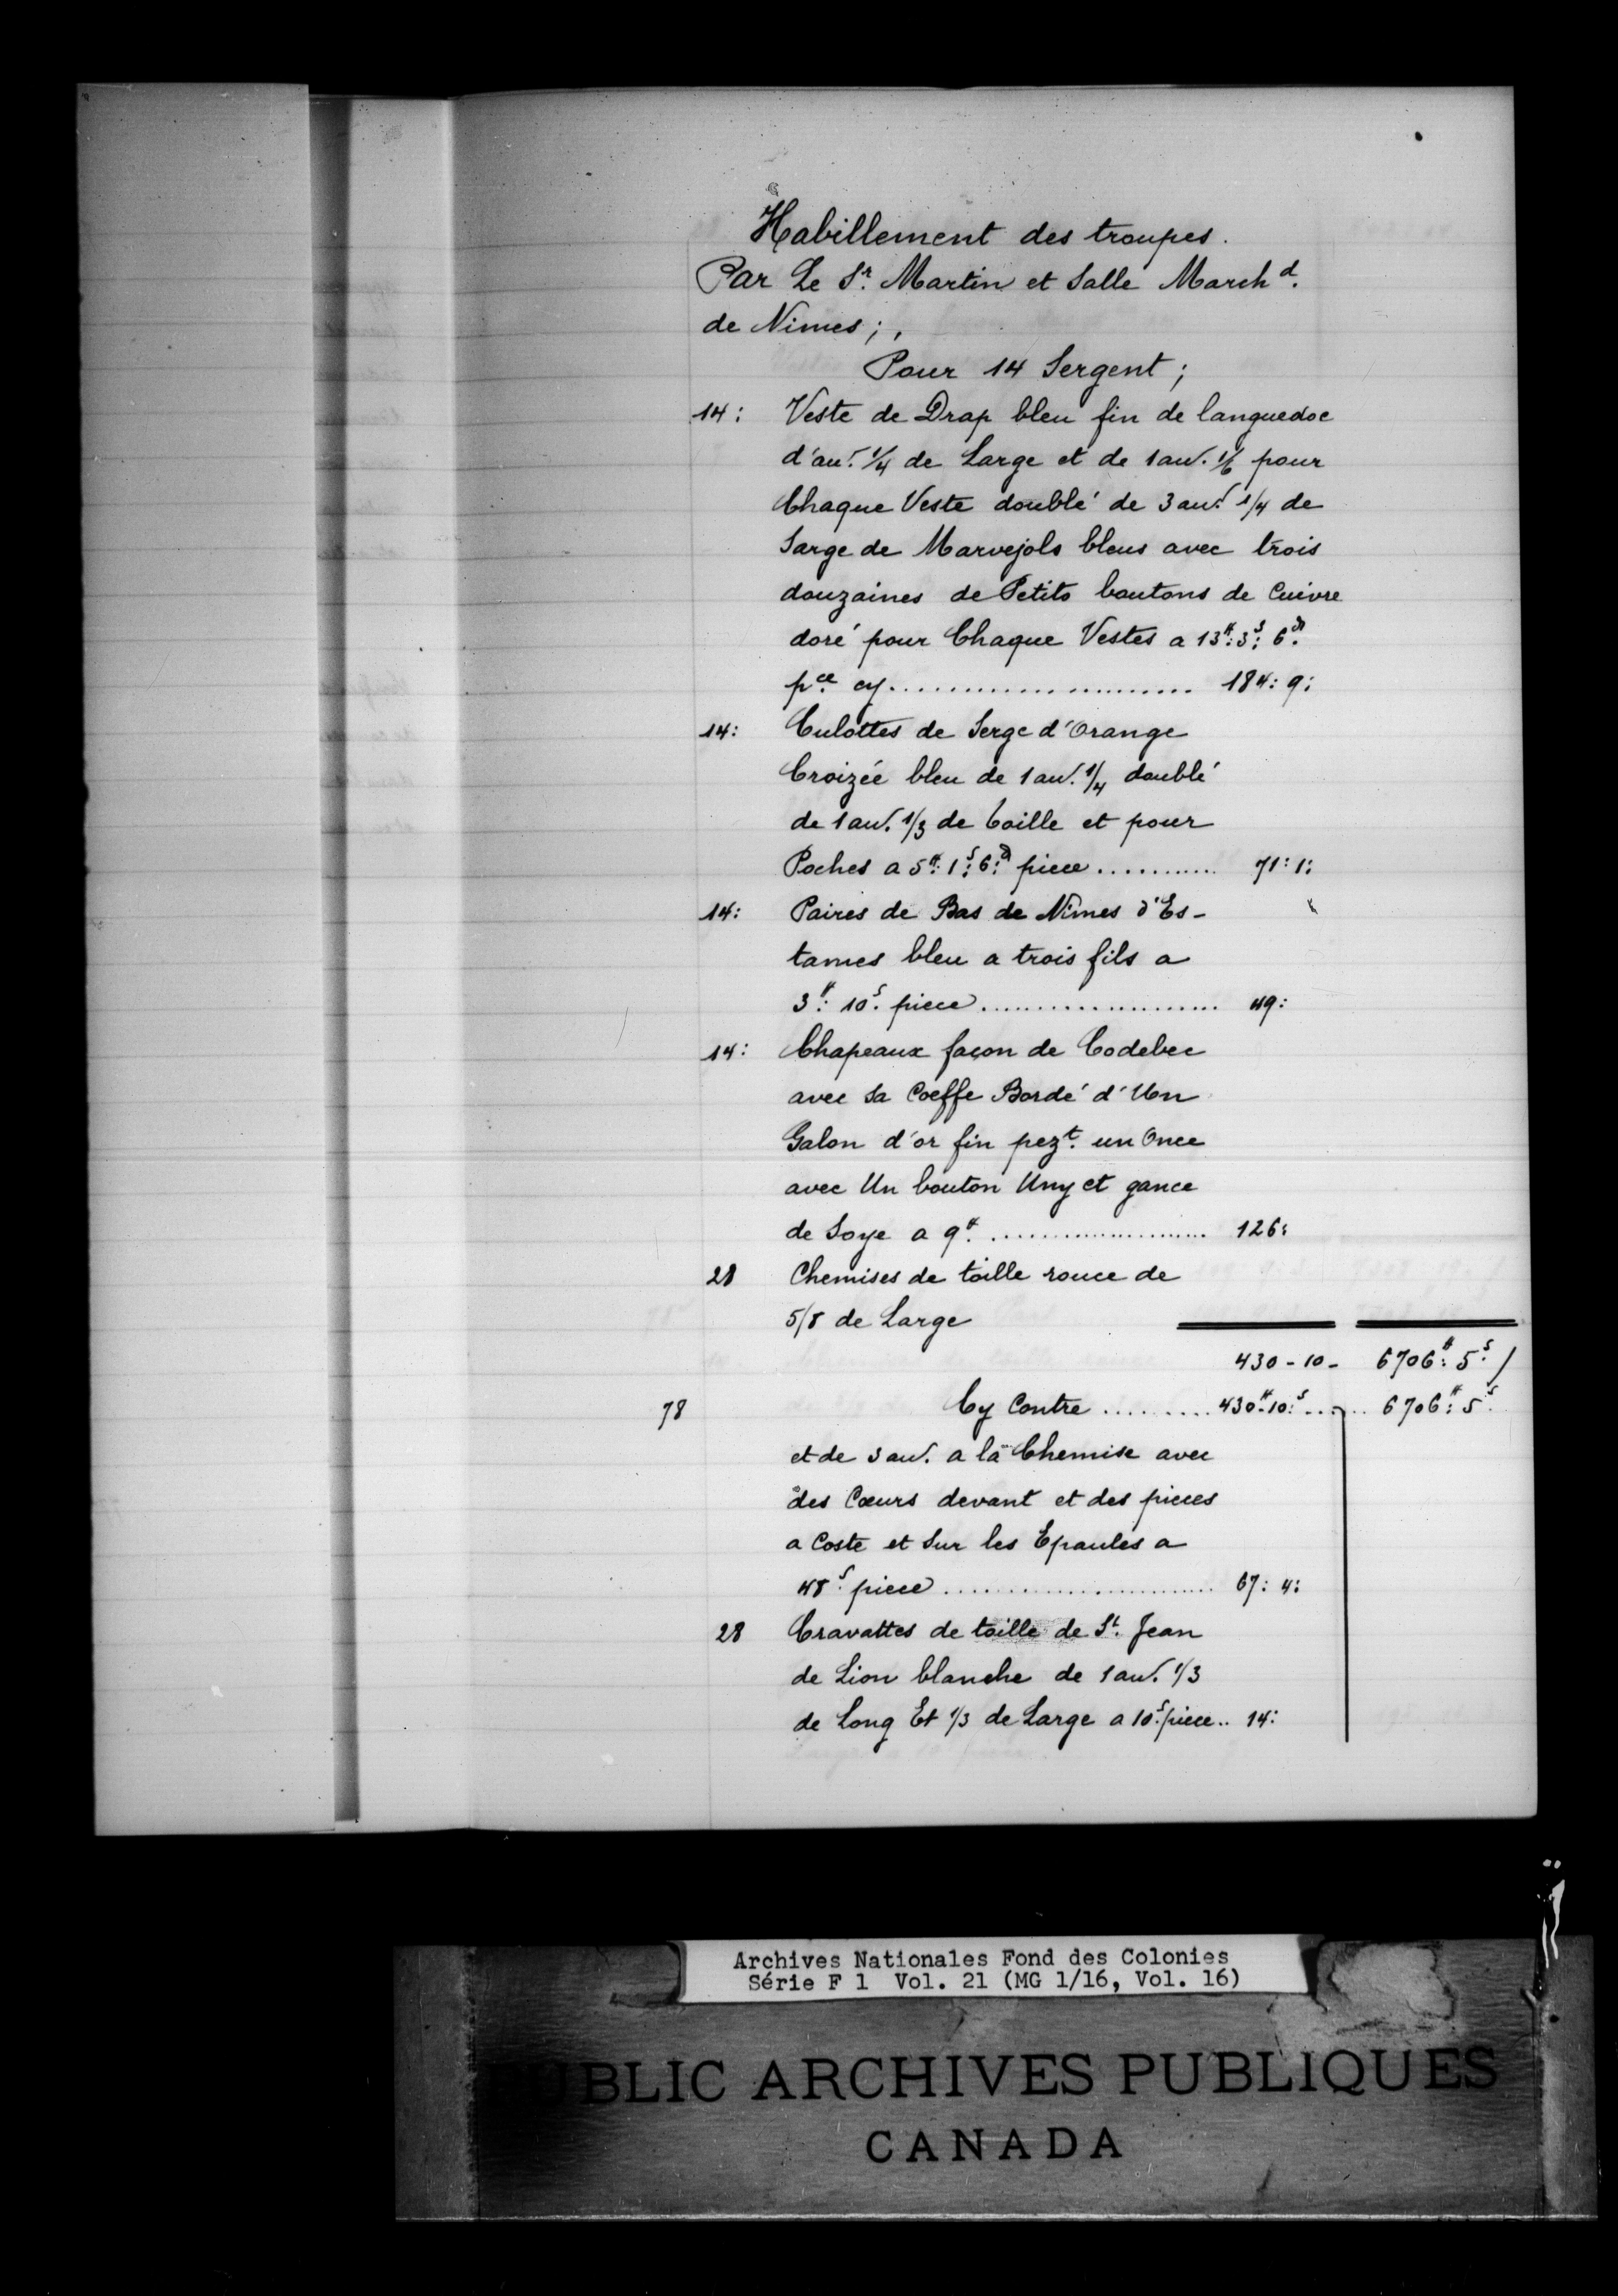 Habillement des troupes.
Par Le Sr. Martin et Salle Marchd.
de Nimes;,
Pour 14 Sergent;
14: Veste de Drap bleu fin de languedoc
d'aus. 1/4 de Large et de 1 aus. 1/6 pour
Chaque Veste doublé de 3 aus. 1/4 de
Sarge de Marvejols bleus avec trois
douzaines de Petits boutons de Cuivre
doré pour Chaque Vestes a 13#: 3s: 6d.
pce. cy....................... 184: 9:
14: Culottes de Serge d'Orange
Croizée bleu de 1 aus. 1/4 doublé
de 1 aus. 1/3 de toille et pour
Poches a 5#: 1s: 6d: piece........... 71: 1:
14: Paires de Bas de Nîmes d'Es-
tames bleu a trois fils a
3#: 10s. piece.................... 49:
14: Chapeaux façon de Codebec
avec sa Coeffe Bordé d'Un
Galon d'or fin pezt. un Once
avec Un bouton Uny et gance
de Soye a 9#. ..................... 126:
28 Chemises de toille rouce de
5/8 de Large
430-10- 6706#: 5s./
78 Cy Contre .........430#-10s:...... 6706#: 5s.
et de 3 aus. a la Chemise avec
des Cœurs devant et des pieces
a Coste et sur les Epaules a
48s. piece....................... 67: 4:
28 Cravattes de toille de St. Jean
de Lion blanche de 1 aus. 1/3
de Long Et 1/3 de Large a 10s. piece.. 14:
Archives Nationales Fond des Colonies
Série F 1 Vol. 21 (MG 1/16, Vol. 16)
PUBLIC ARCHIVES PUBLIQUES
CANADA